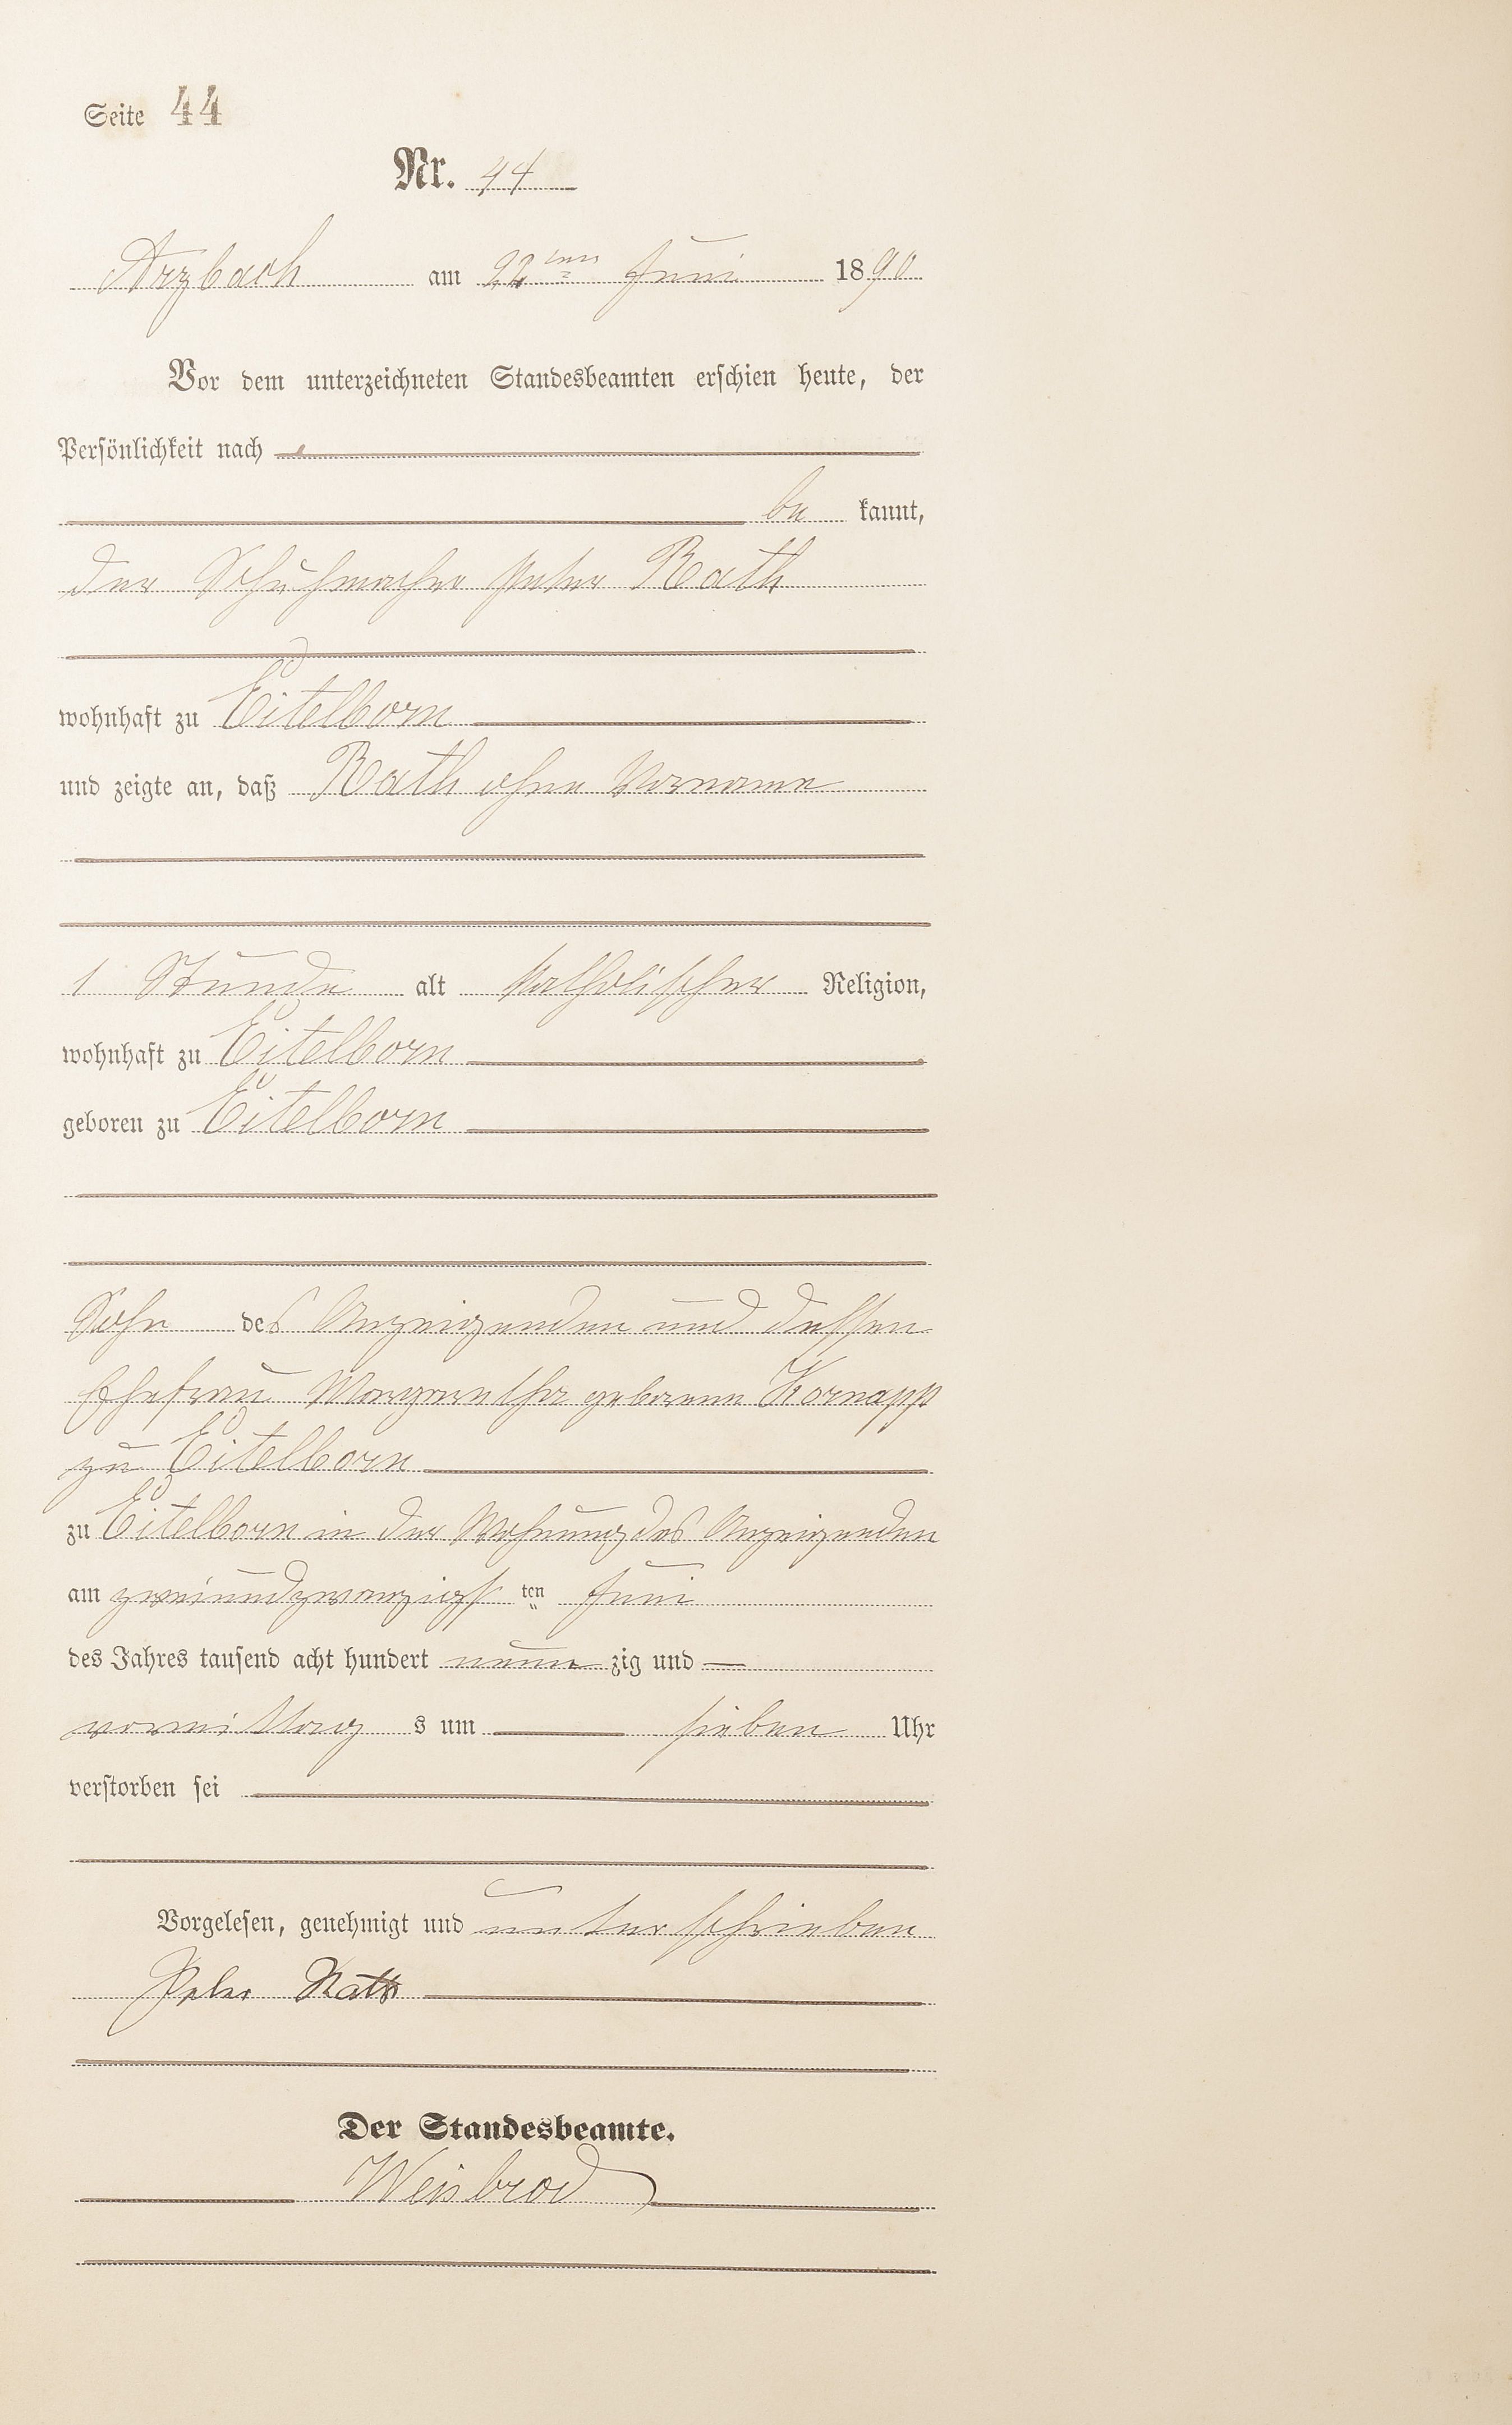 Seite 44
Nr. 44
Arzbach am 22ten Juni 1890
Vor dem unterzeichneten Standesbeamten erschien heute, der
Persönlichkeit nach
be kannt,
der Schuhmacher Peter Rath
wohnhaft zu Eitelborn
und zeigte an, daß Rath ohne Vorname
1 Stunde alt katholischer Religion,
wohnhaft zu Eitelborn
geboren zu Eitelborn
Sohn des Anzeigenden und dessen
Ehefrau Margarethe geborene Kornapp
zu Eitelborn
zu Eitelborn in der Wohnung des Anzeigenden
am zweiundzwanzigsten Juni
des Jahres tausend acht hundert neunzig und —
vormittags um sieben Uhr
verstorben sei
Vorgelesen, genehmigt und unterschrieben
Peter Rath
Der Standesbeamte.
Weisbrod